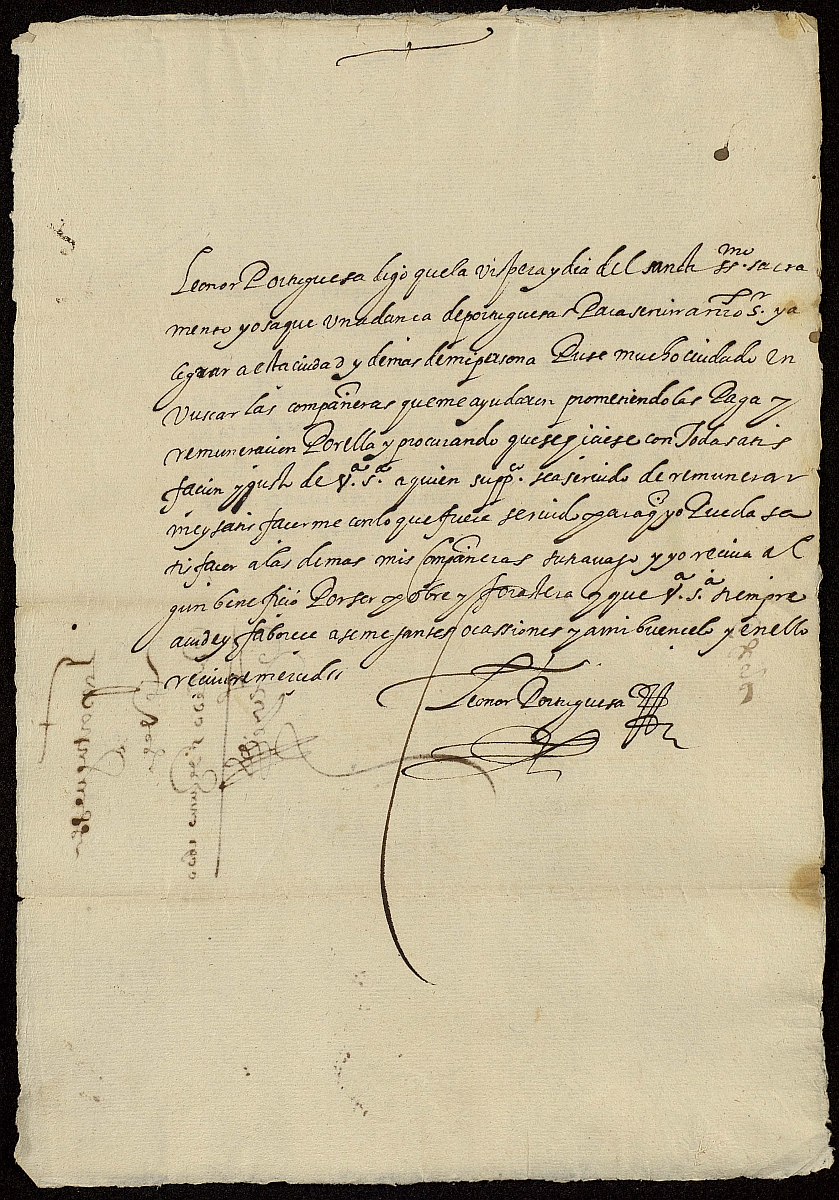 Leonor Portuguesa digo que la vispera y dia del sanctiss.mo sacra
mento yo saque una dança de portuguesas Para servir a nro s.r y a
legrar a esta ciudad y demas de mi persona Puse mucho cuidado en
vuscar las compañeras que me ayudaren prometiendolas Paga y
remuneracion Por ella y procurando que se hiciese con Toda satis
facion y gusto de V.a s.a a quien supp.co sea servido de remunerar
me y satisfacerme con lo que fuere servido para q yo Pueda sa
tisfacer a las demas mis Compañeras su travajo y yo reciva al
gun beneficio Por ser pobre y forastera y que V.a s.a siempre
acude y faborece a semejantes ocassiones y a mi buen celo y en ello
recivire merced
Leonor Portuguesa